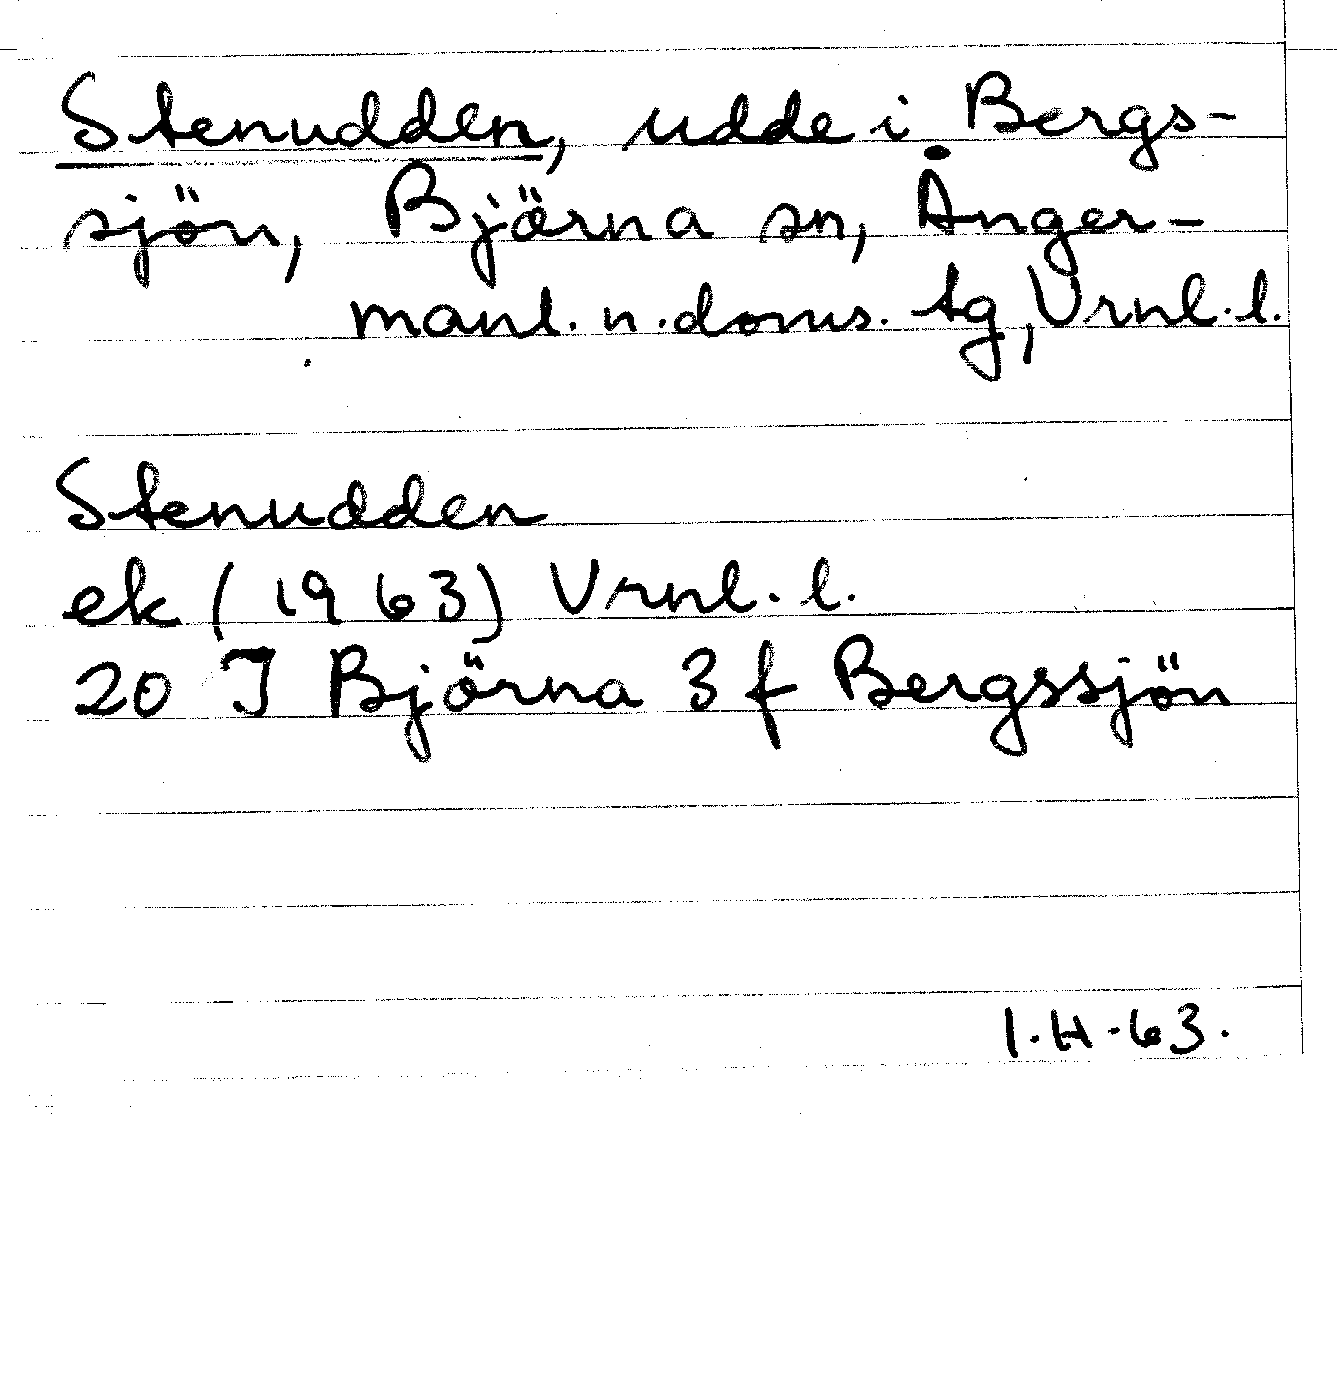 Stenudden, udde i Bergs-
sjön, Björna sn, Ånger-
manl. n. doms. tg, Vrnl. l.
Stenudden
ek (1963) Vrnl. l.
20 I Björna 3 f Bergssjön
I.H.63.